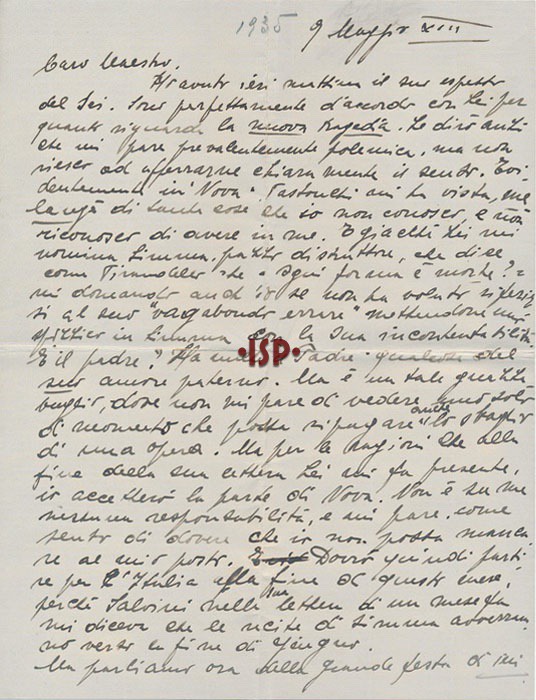 1935 9 Maggio XIII
Caro Maestro.
Ho avuto ieri mattina il suo espresso
del Sei. Sono perfettamente d'accordo con Lei per
quanto riguarda la nuova tragedia. Le dirò anzi
che mi pare prevalentemente polemica, ma non
riesco ad afferrarne chiaramente il senso. Evi
dentemente in "Nova" Pastonchi mi ha vista, me
di tante cose che io non conosco, e non
riconosco di avere in me. E giacchè Lei mi
nomina Simma, pazzo distruttore, che dice
come "ogni forma è morte"?
mi domando anch'io se non ha voluto riferir
si al suo "vagabondo errare" mettendone un
in Simma con la sua incontentabilità
E il padre? Ha nel Padre qualcosa del
suo amore paterno. Ma è un tale guazza
buglio, dove non mi pare di vedere uno solo
di momento che possa ripagare anche lo sbaglio
di una opera. Ma per le ragioni che alla
fine della sua lettera Lei mi fa presente,
io accetterò la parte di Nova. Non è su me
nessuna responsabilità, e mi pare, come
sento di dovere che io non possa manca
re al mio posto. Dovrò quindi parti
re per l'Italia alla fine di questo mese,
perchè Salvini nella sua lettera di un mese fa
mi diceva che le recite di Simma avverran
no verso la fine di Giugno.
Ma parliamo ora della grande festa di ieri
·ISP·